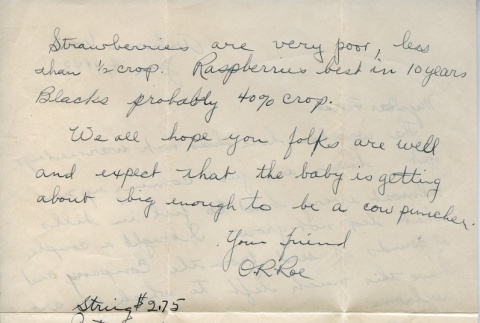 Strawberries are very poor, less
than ½ crop. Raspberries best in 10 years
Blacks probably 40% crop.
We all hope you folks are well
and expect that the baby is getting
about big enough to be a cow puncher.
Your friend
O.R. Roe
String $2.75